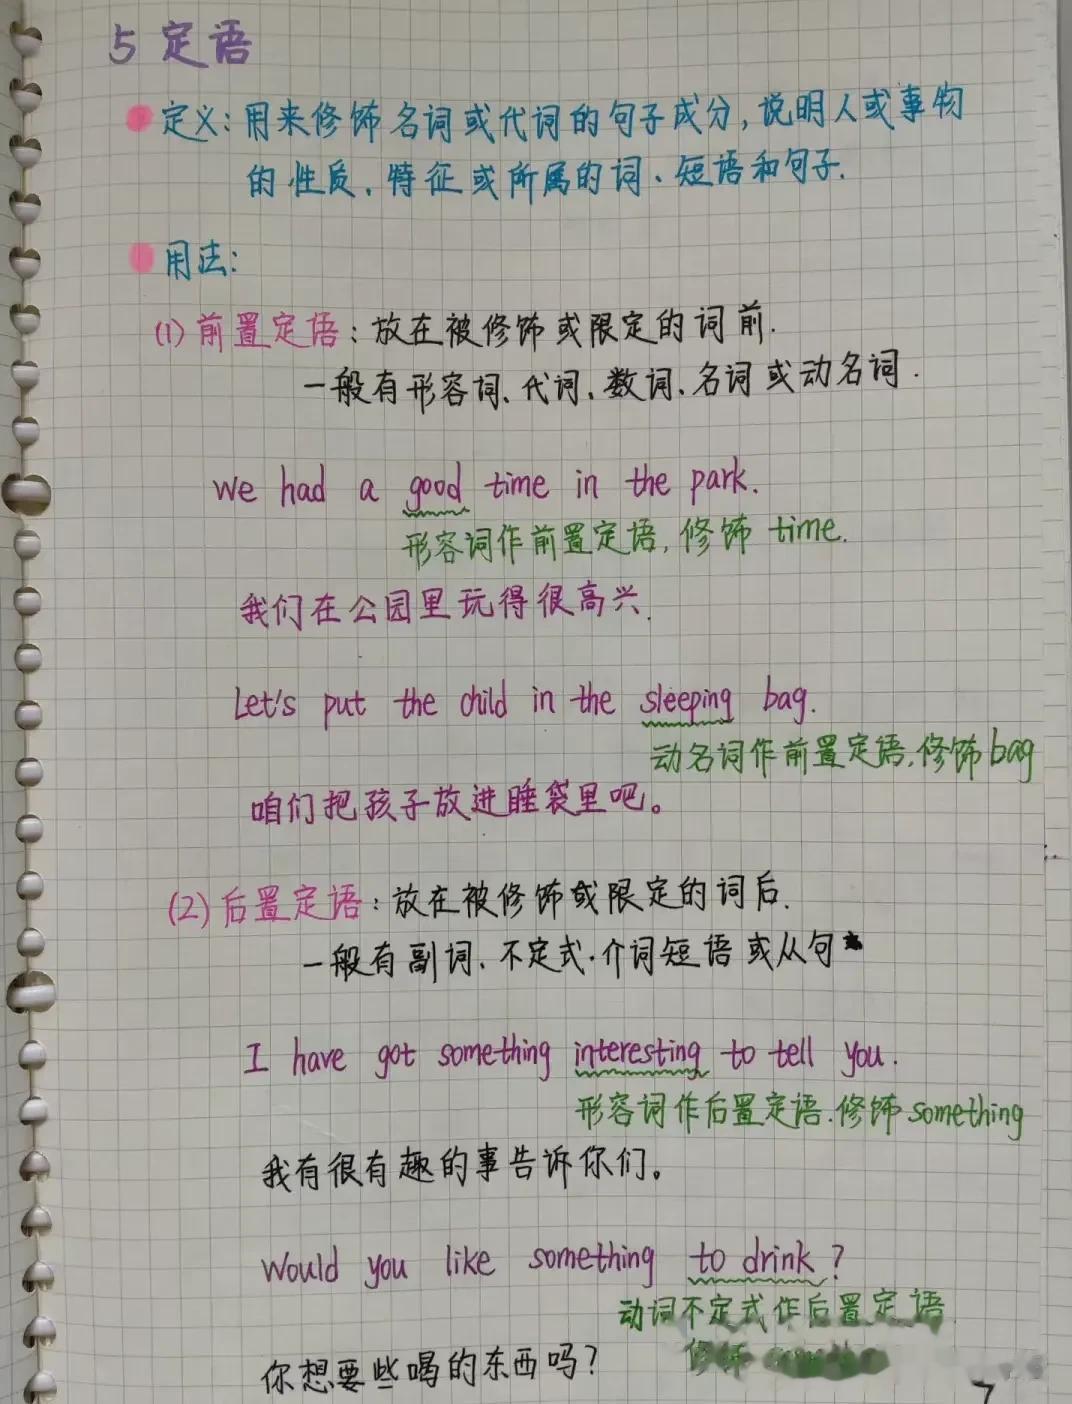 5 定语
定义：用来修饰名词或代词的句子成分，说明人或事物
的性质、特征或所属的词、短语和句子.
用法：
(1) 前置定语：放在被修饰或限定的词前.
一般有形容词、代词、数词、名词或动名词.
We had a good time in the park.
形容词作前置定语，修饰 time.
我们在公园里玩得很高兴.
Let's put the child in the sleeping bag.
动名词作前置定语，修饰bag
咱们把孩子放进睡袋里吧。
(2) 后置定语：放在被修饰或限定的词后.
一般有副词、不定式、介词短语或从句
I have got something interesting to tell you.
形容词作后置定语，修饰something
我有很有趣的事告诉你们。
Would you like something to drink?
动词不定式作后置定语
修饰
你想要些喝的东西吗？
7